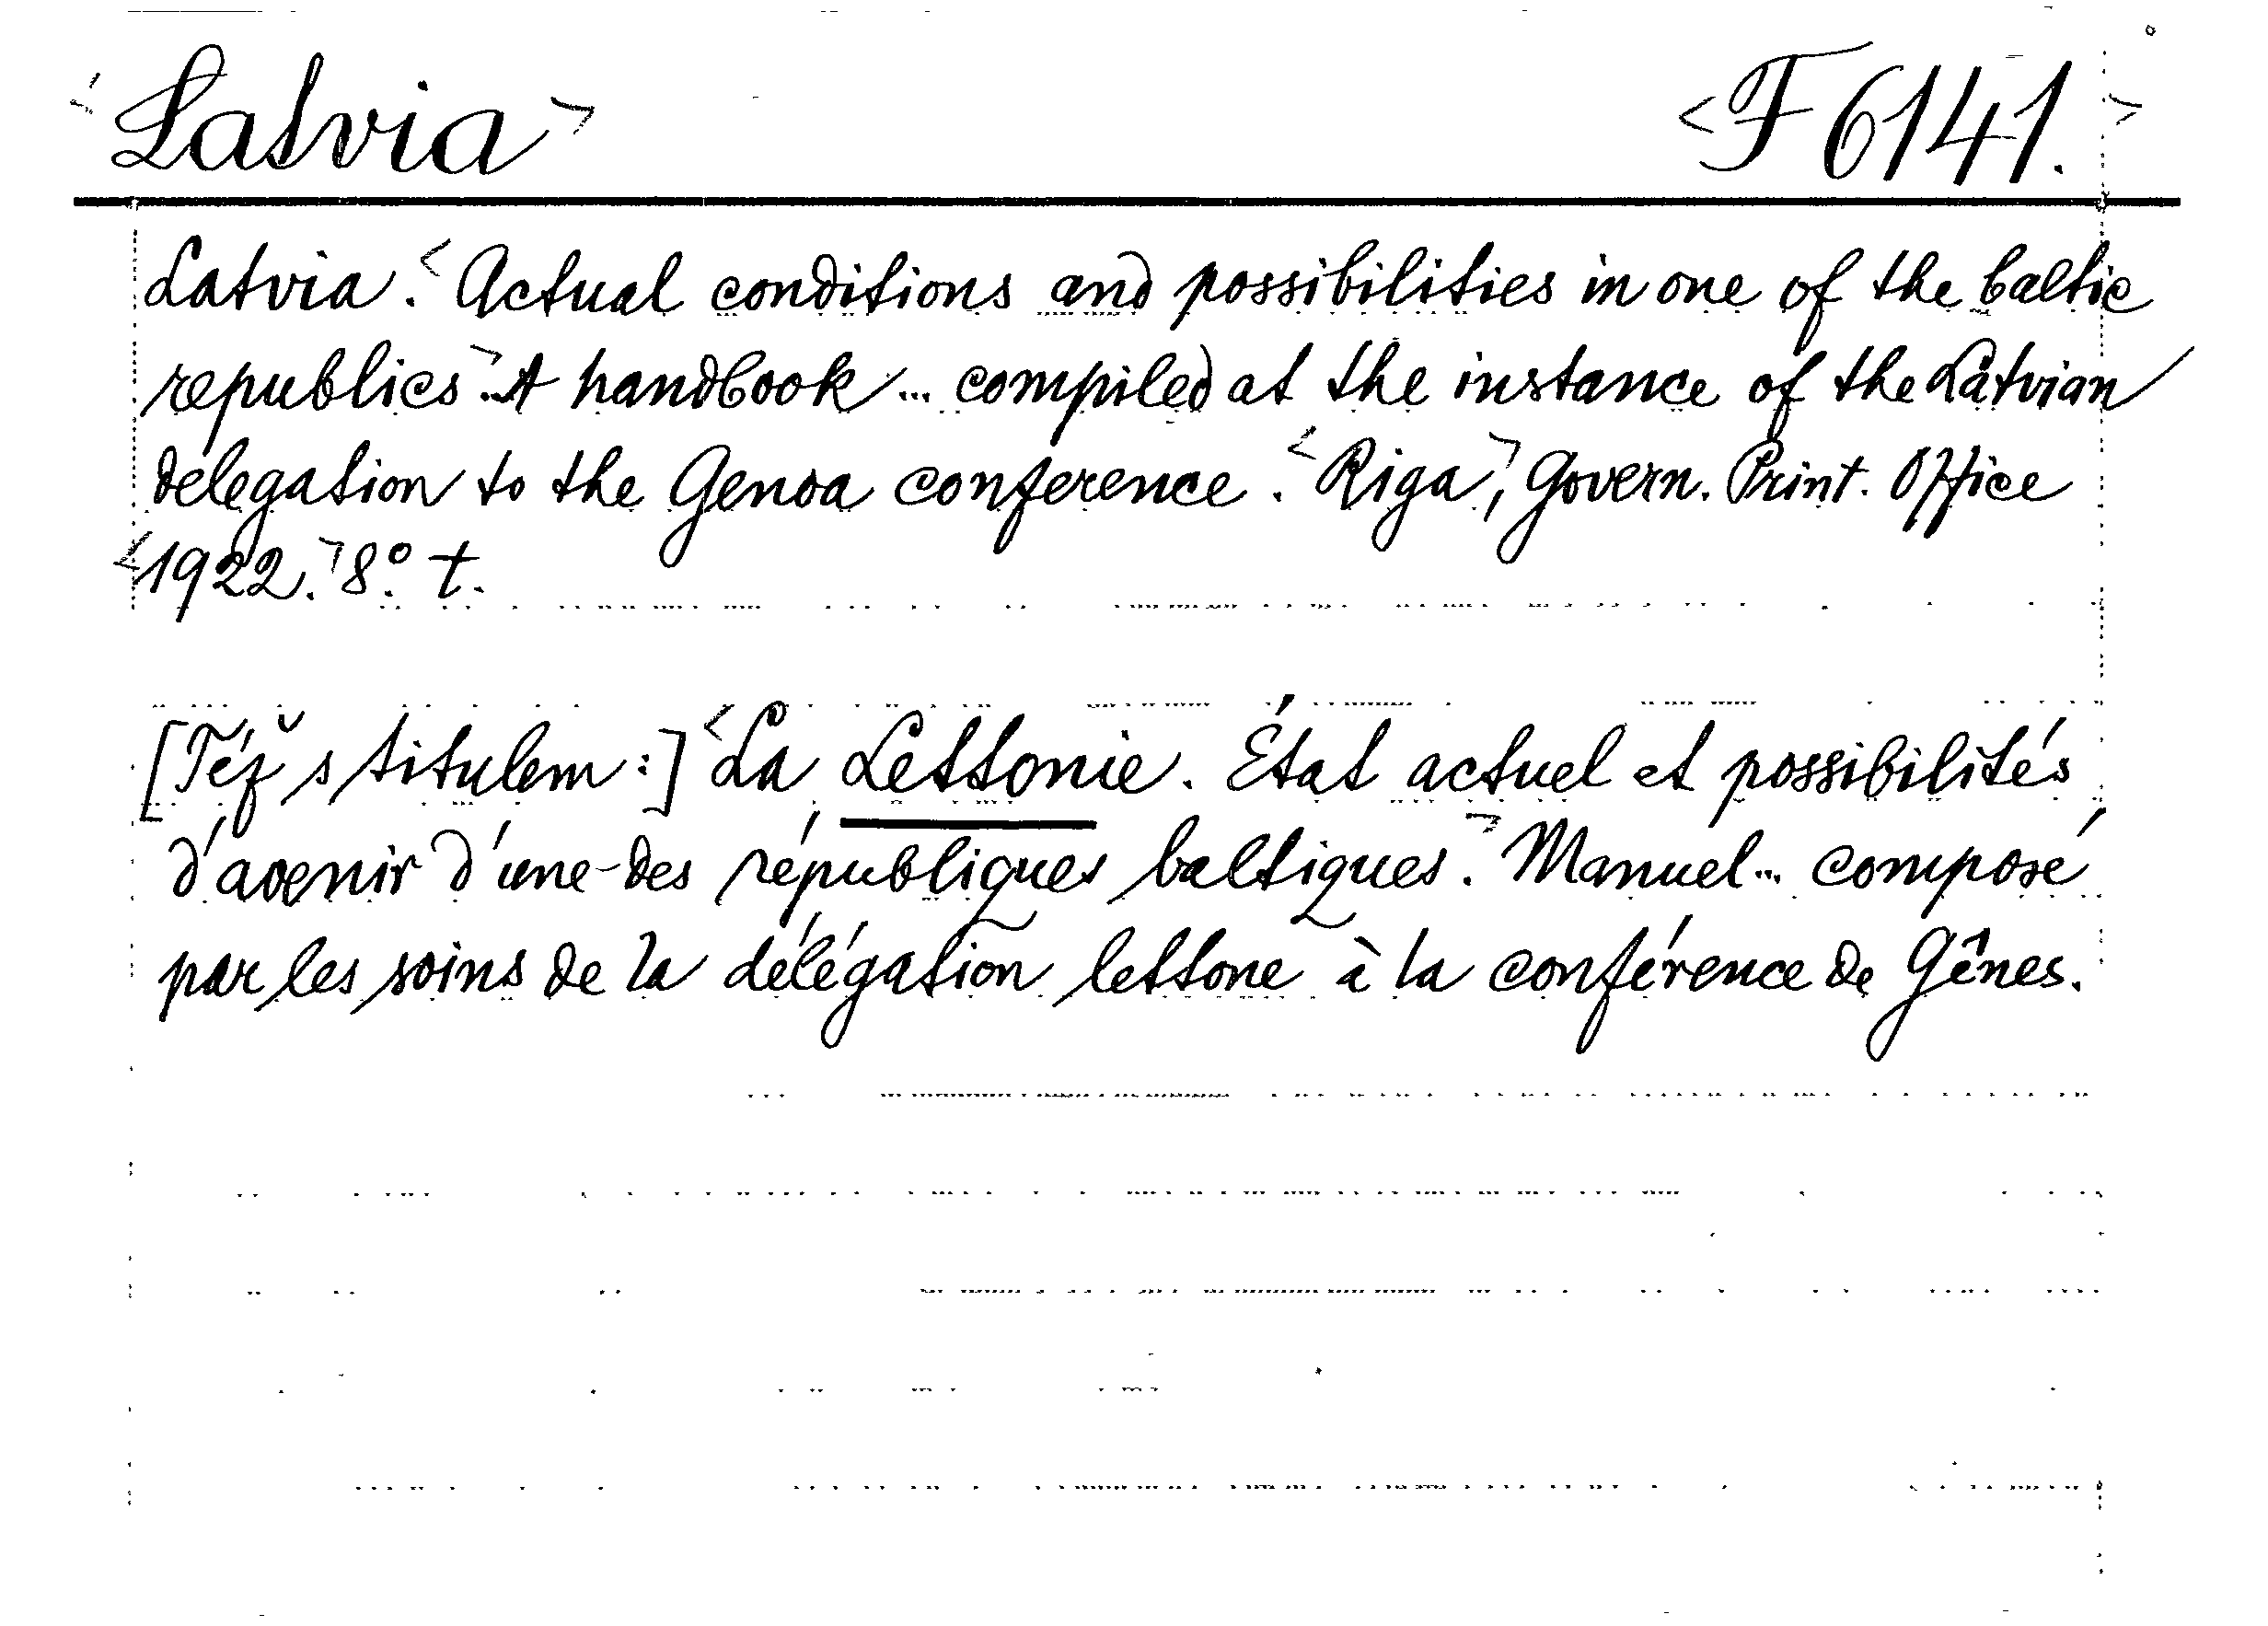 <Latvia> <F 6141.>
Latvia. <Actual conditions and possibilities in one of the baltic
republics>. A handbook ... compiled at the instance of the Latvian
delegation to the Genoa conference. <Riga>, Govern. Print. Office
<1922.> 8°. t.
[Též s titulem:] <La Lettonie. État actuel et possibilités
d'avenir d'une des républiques baltiques>. Manuel ... composé
par les soins de la délégation lettone à la conférence de Gênes.